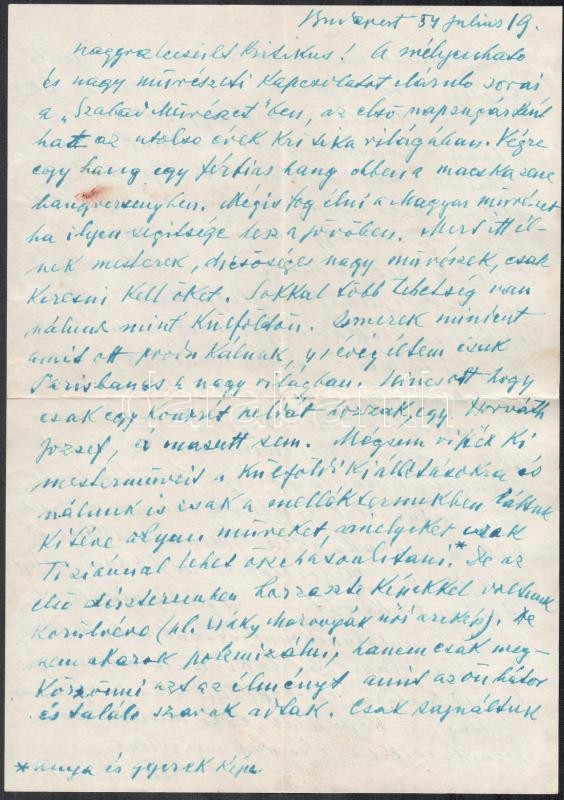 Budapest 54 július 19.
nagyrabecsült Kritikus! A mélyenható
és nagy művészeti kapcsolatot eláruló sorai
a „Szabad Művészet"ben, az első napsugárként
hatt az utolsó évek Kritika világában. Végre
egy hang egy férfias hang ebben a macskazene
hangversenyben. Mégis fog élni a Magyar művészet
ha ilyen segitsége lesz a jövőben. Mert itt él-
nek mesterek, dicsőséges nagy művészek, csak
keresni kell őket. Sokkal több tehetség van
nálunk mint Külföldön. Ismerek mindent
amit ott produkálnak, évig éltem csak
Párisban és a nagy világban. Nincs ott hogy
csak egy hozzak, egy Horváth
József, a sem. Mégsem vitték ki
mesterműveit a Külföldi Kiállitásokra és
nálunk is csak a melléktermekben láttuk
kitéve olyan műveket amelyeket csak
Tiziánnal lehet összehasonlitani.* De az
első díszteremben borzasztó Képekkel voltunk
körülvéve (pl. Csáky Maronyák női arckép). De
nem akarok polemizálni, hanem csak meg-
köszönni azt az élményt amit az ön bátor
és találó szavak adtak. Csak sajnáltuk
* anya és gyerek képe
darabanth